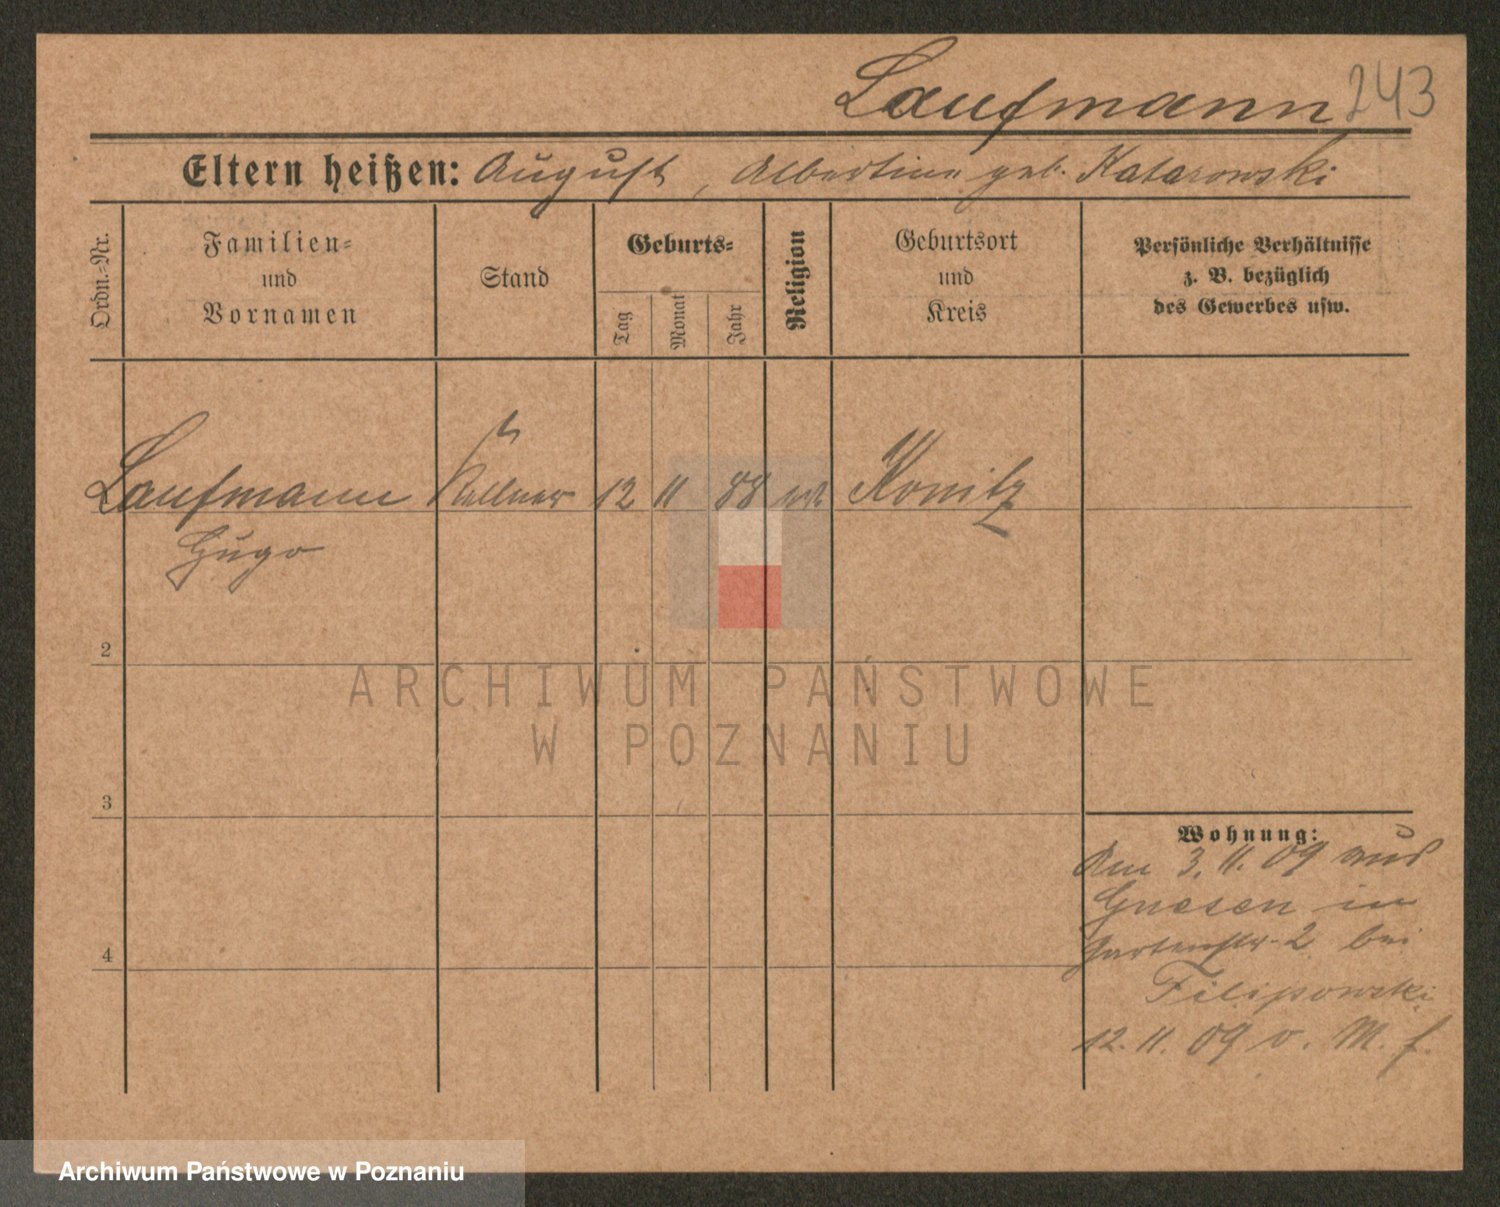 Laufmann 243
Eltern heißen: August, Albertine geb. Katarowski
Ordn.-Nr.
Familien-
und
Vornamen
Stand
Geburts-
Tag
Monat
Jahr
Religion
Geburtsort
und
Kreis
Persönliche Verhältnisse
z. B. bezüglich
des Gewerbes usw.
Laufmann Kellner 12 11 88 Konitz
Hugo
2
3
4
Wohnung:
Am 3.11.09 aus
Gnesen in
Gartenstr. 2 bei
Filipowski
12.11.09 v. M. f.
ARCHIWUM PAŃSTWOWE
W POZNANIU
Archiwum Państwowe w Poznaniu